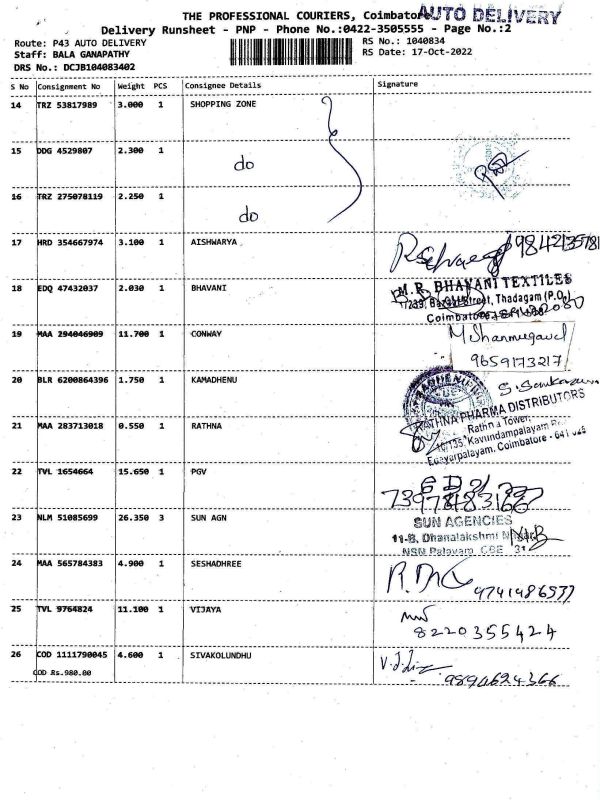 THE PROFESSIONAL COURIERS, Coimbator
AUTO DELIVERY
Delivery Runsheet - PNP - Phone No.:0422-3505555 - Page No.:2
Route: P43 AUTO DELIVERY
RS No.: 1040834
Staff: BALA GANAPATHY
RS Date: 17-Oct-2022
DRS No.: DCJB104083402
S No Consignment No Weight PCS Consignee Details Signature
14 TRZ 53817989 3.000 1 SHOPPING ZONE
15 DDG 4529807 2.300 1
do
16 TRZ 275078119 2.250 1
do
17 HRD 354667974 3.100 1 AISHWARYA
18 EDQ 47432037 2.030 1 BHAVANI
M.R. BHAVANI TEXTILES
Street, Thadagam (P.O.)
19 MAA 294046909 11.700 1 CONWAY
M Shanmugavel
9659173217
20 BLR 6200864396 1.750 1 KAMADHENU
21 MAA 283713018 0.550 1 RATHNA
RATHNA PHARMA DISTRIBUTORS
Rathna Tower,
Kavundampalayam
Edayarpalayam, Coimbatore - 641 025
22 TVL 1654664 15.650 1 PGV
23 NLM 51085699 26.350 3 SUN AGN
SUN AGENCIES
11-B, Dhanalakshmi
NSN Palayam, CBE
24 MAA 565784383 4.900 1 SESHADHREE
25 TVL 9764824 11.100 1 VIJAYA
8220355424
26 COD 1111790045 4.600 1 SIVAKOLUNDHU
COD Rs.980.00
9894624366